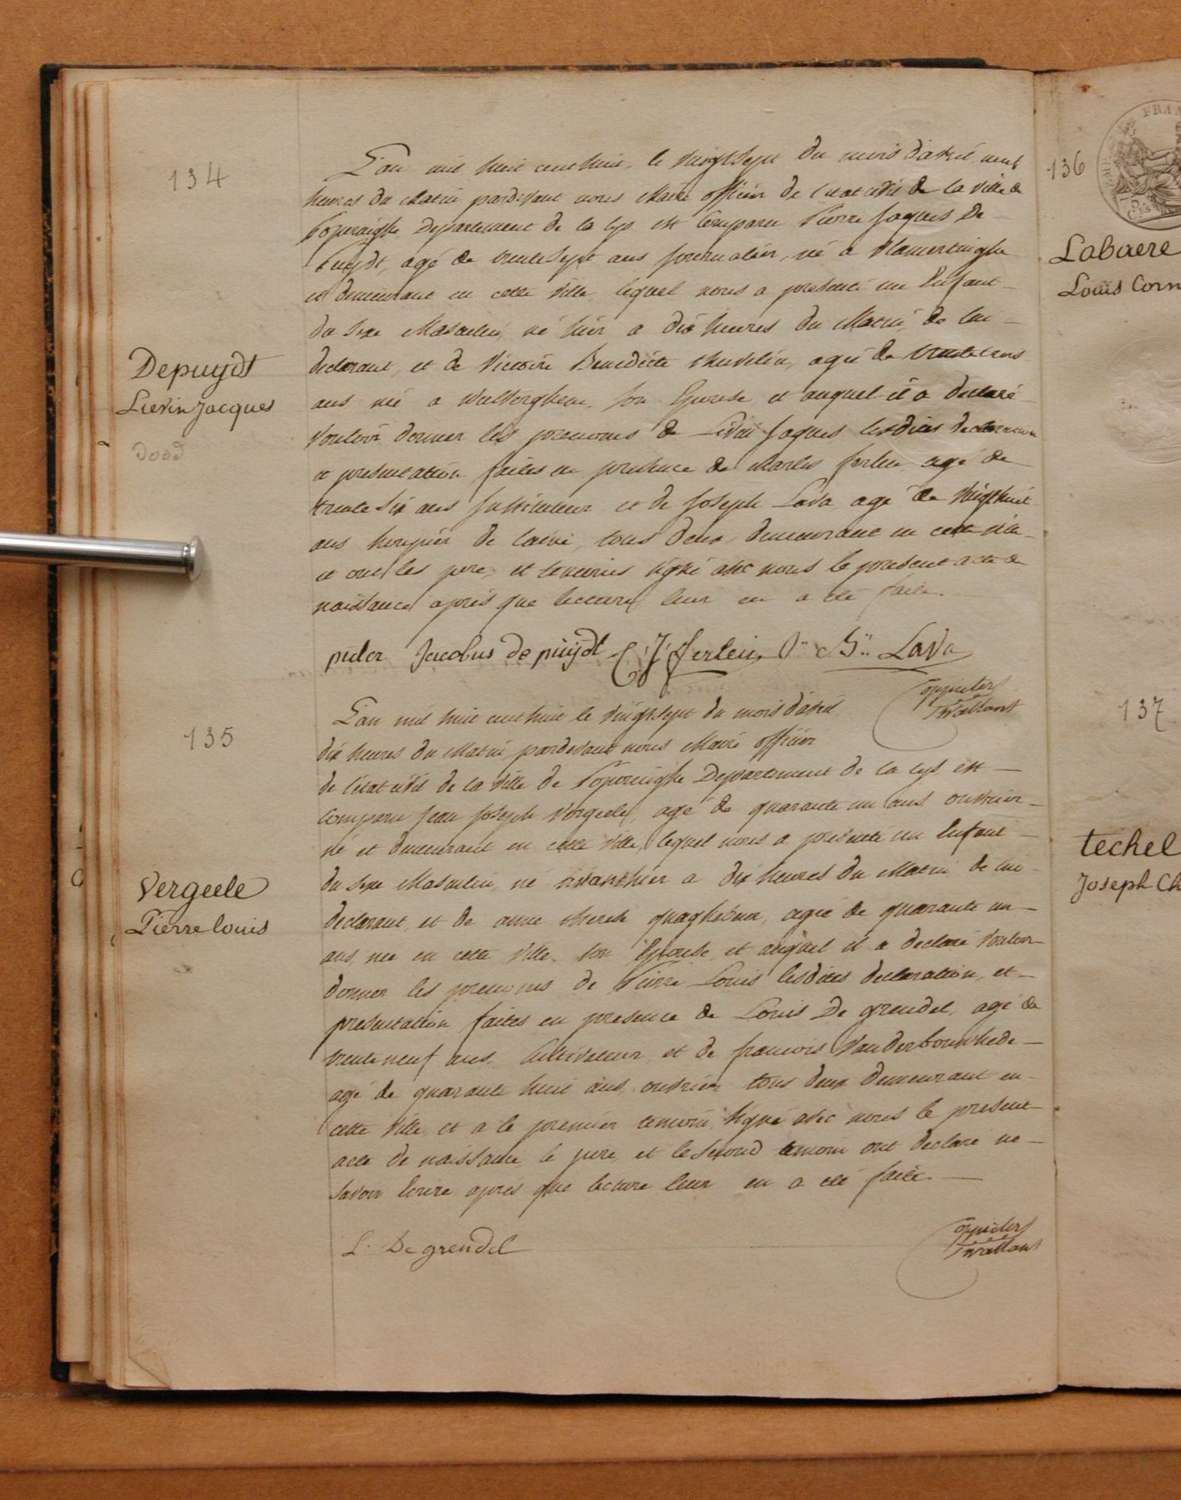 134
Depuydt
Lievin Jacques
dood
L'an mil huit cent huit le vingt sept du mois d'avril neuf
heures du matin pardevant nous Maire officier de l'état civil de la ville de
Poperinghe Departement de la Lys est comparu Pierre Jaques De
Puydt, agé de trente sept ans journalier, né a Vlamertinghe
et demeurant en cette ville, lequel nous a presenté un Enfant
du sexe Masculin né hier a dix heures du Matin de lui
declarant, et de Victoire Benedicte agée de trente
ans née a son Epouse et auquel il a declaré
vouloir donner les prenoms de Lievin Jaques lesdites declaration
et presentation faites en presence de Charles ferlin agé de
trente six ans et de Joseph Lava agé de vingt huit
ans tous deux demeurant en cette ville
et ont les pere et temoins signé avec nous le present acte de
naissance après que lecture leur en a été faite.
Jacobus de puijdt C J ferlein Lava
135
Vergeele
Pierre louis
L'an mil huit cent huit le vingt sept du mois d'avril
dix heures du Matin pardevant nous Maire officier
de l'état civil de la ville de Poperinghe Departement de la Lys est
comparu Jean Joseph Vergeele, agé de quarante un ans ouvrier
né et demeurant en cette ville, lequel nous a presenté un Enfant
du sexe Masculin né avanthier a dix heures du Matin de lui
declarant, et de anne therese quaghebeur, agée de quarante un
ans, née en cette ville, son Epouse, et auquel il a declaré vouloir
donner les prenoms de Pierre Louis lesdites declaration, et
presentation faites en presence de Louis De grendel, agé de
trente neuf ans, Cultivateur et de francois Vanderbouwhede
agé de quarante huit ans, ouvrier tous deux demeurant en
cette ville, et a le premier temoin signé avec nous le present
acte de naissance le pere et le second temoin ont declaré ne
savoir Ecrire après que lecture leur en a été faite.
L. De grendel
136
Labaere
Louis Corn
137
techel
Joseph Ch